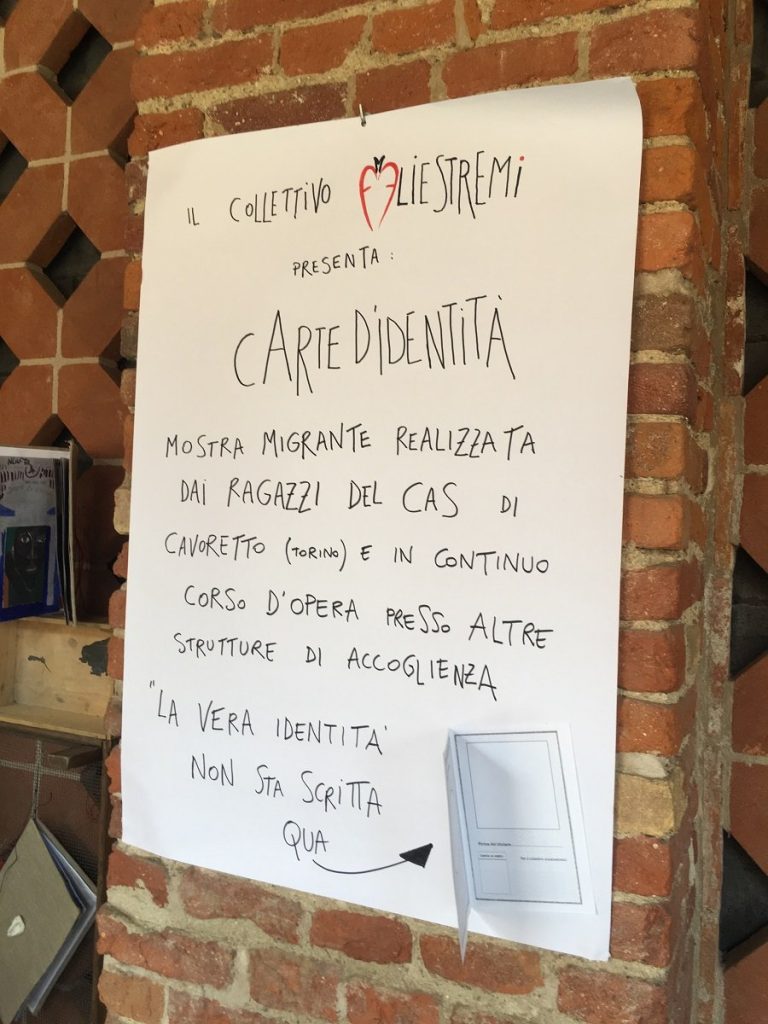 IL COLLETTIVO LIESTREMI
PRESENTA:
CARTE D'IDENTITÀ
MOSTRA MIGRANTE REALIZZATA
DAI RAGAZZI DEL CAS DI
CAVORETTO (TORINO) E IN CONTINUO
CORSO D'OPERA PRESSO ALTRE
STRUTTURE DI ACCOGLIENZA
"LA VERA IDENTITA'
NON STA SCRITTA
QUA